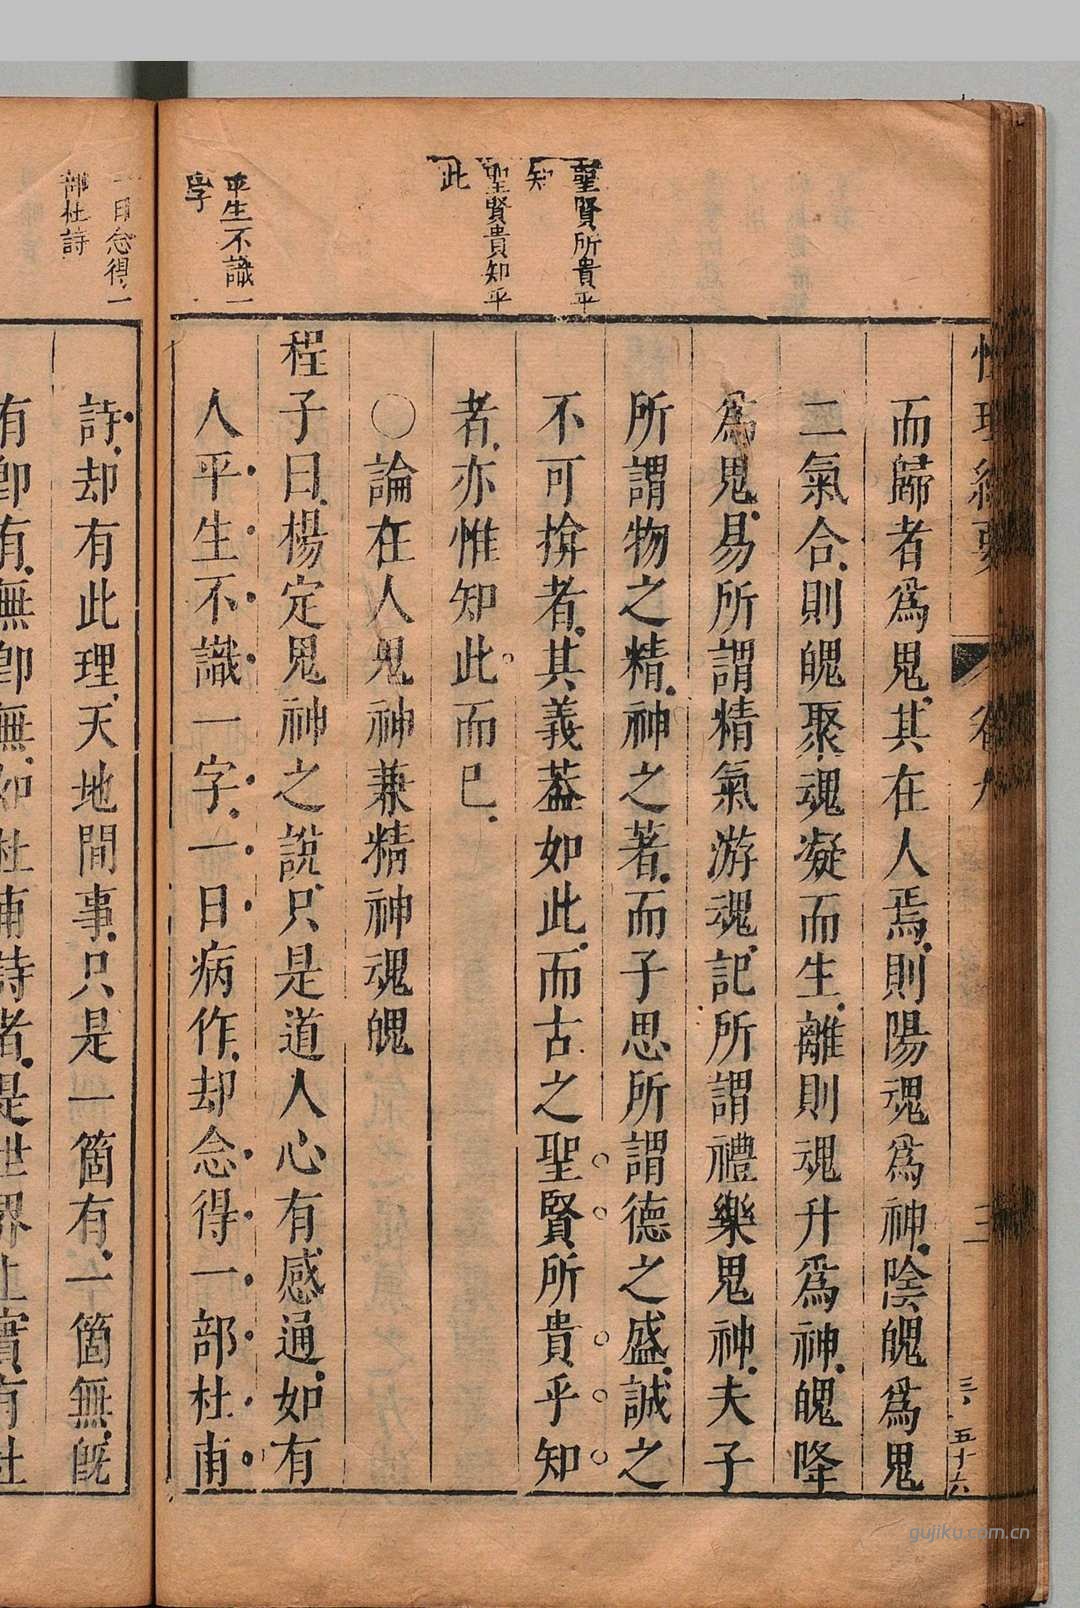 性理綜要
卷九
三
三、五十六
而歸者爲鬼其在人焉則陽魂爲神陰魄爲鬼
二氣合則魄聚魂凝而生離則魂升爲神魄降
爲鬼易所謂精氣游魂記所謂禮樂鬼神夫子
所謂物之精神之著而子思所謂德之盛誠之
不可揜者其義葢如此而古之聖賢所貴乎知
者亦惟知此而已
○論在人鬼神兼精神魂魄
程子曰楊定鬼神之說只是道人心有感通如有
人平生不識一字一日病作却念得一部杜甫
聖賢所貴乎
知
聖賢貴知乎
此
平生不識一
字
詩却有此理天地間事只是一箇有一箇無旣
有卽有無卽無如杜甫詩者是世界上實有杜
一日念得一
部杜詩
gujiku.com.cn